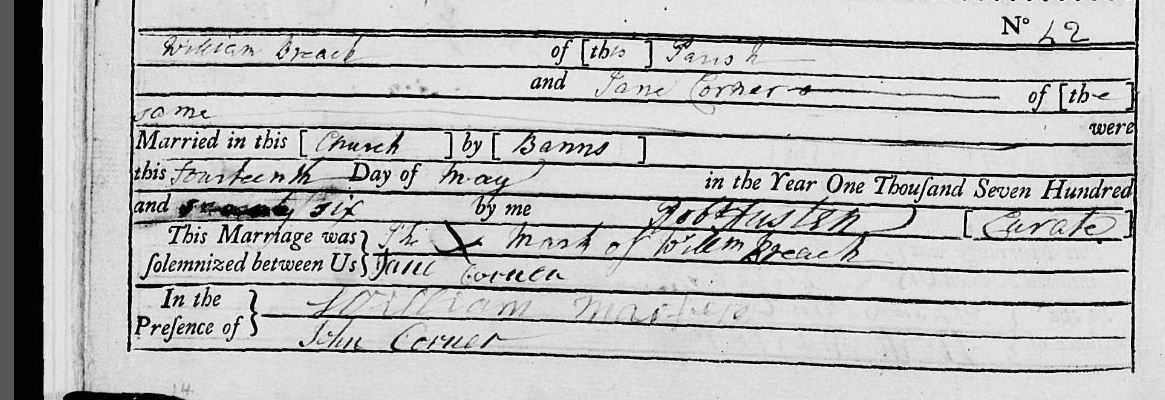 Nº 42
William Breach of [this] Parish
and Jane Corner of [the]
same were
Married in this [Church] by [Banns]
this fourteenth Day of May in the Year One Thouſand Seven Hundred
and seventy six by me Robt Austen [Curate]
This Marriage was The X Mark of Willm Breach
ſolemnized between Us Jane Corner
In the William
Preſence of John Corner
14